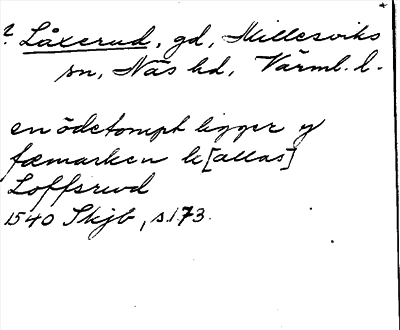 ? Låxerud, gd, Millesviks
sn, Näs hd, Värml. l.
en ödetompt ligger y
fæmarken k[allas]
Loffsrwd
1540 Skjb, s.173.